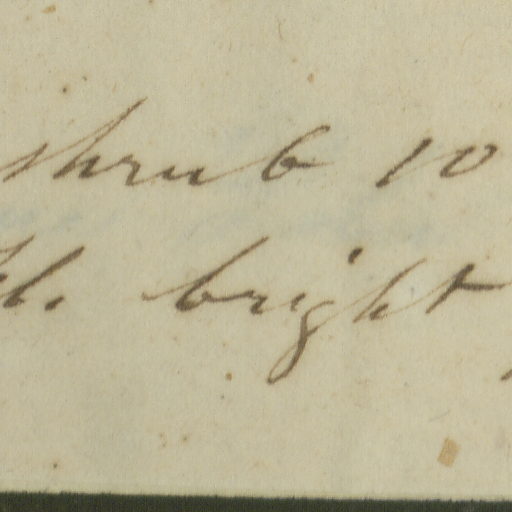 shrub 10
bright